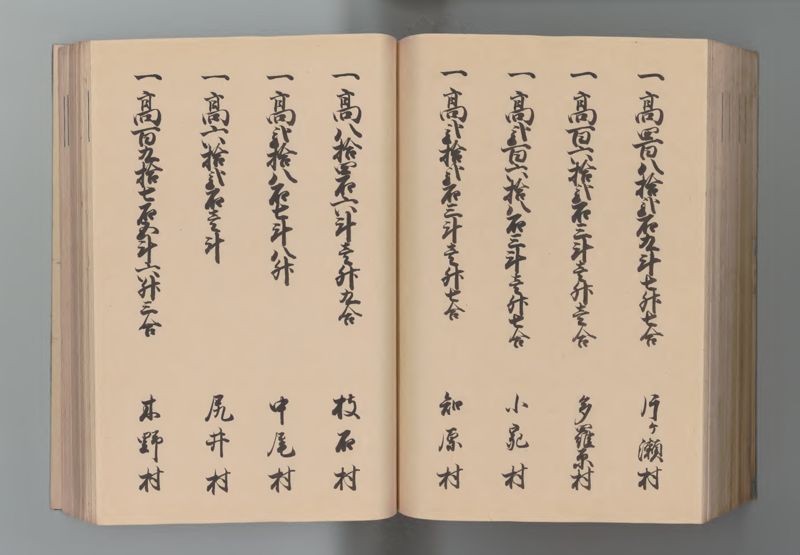 一高四百八拾弐石九斗七升七合 片ケ瀬村
一高百六拾弐石三斗壱升壱合 多羅原村
一高弐百六拾八石三斗壱升七合 小 村
一高弐拾弐石三斗壱升七合 知原村
一高八拾四石六斗壱升九合 枝石村
一高弐拾八石七斗八升 中尾村
一高六拾弐石壱斗 尻井村
一高百九拾七石四斗六升三合 木野村